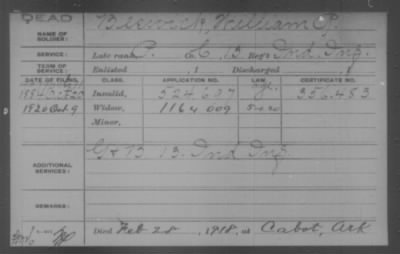 DEAD
NAME OF SOLDIER:
William P.
SERVICE:
Late rank P. Co. C, 13 Reg't Ind. Inf.
TERM OF SERVICE:
Enlisted , 1 Discharged , 1
DATE OF FILING. CLASS. APPLICATION NO. LAW. CERTIFICATE NO.
1884 Invalid, 524,637 356,483
1920 Oct. 9 Widow, 1164 009
Minor,
G & B 13. Ind Inf.
ADDITIONAL SERVICES:
REMARKS:
Died Feb 28, 1918, at Cabot, Ark